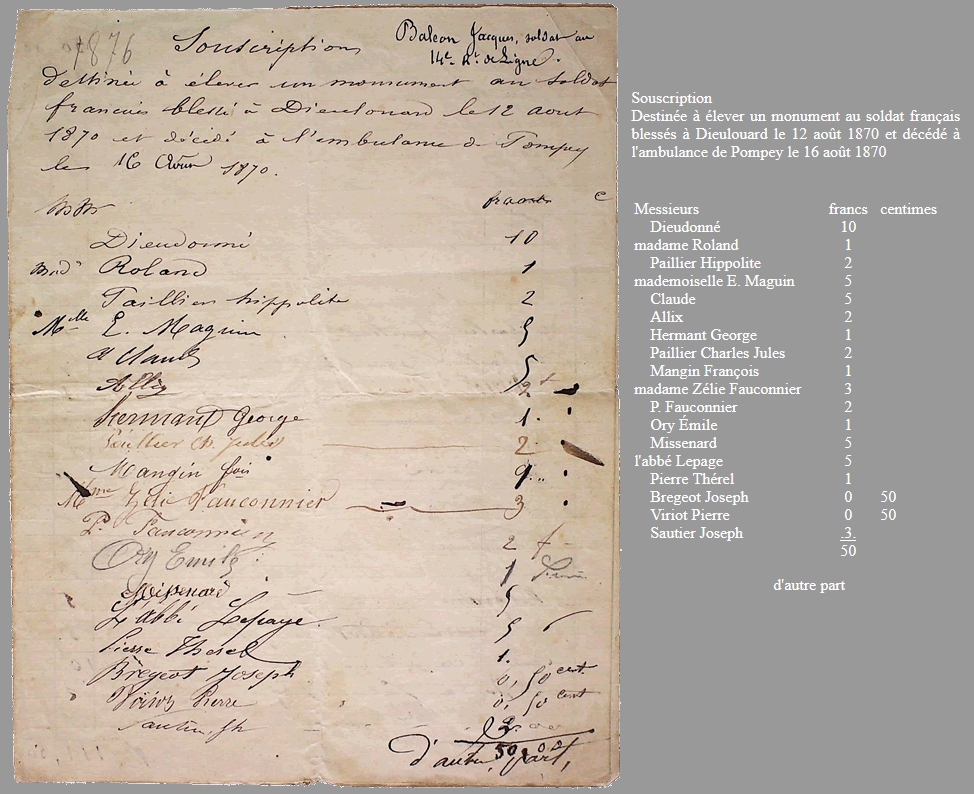 1876
Souscription
Balcon Jacques, soldat au
14e Rt. de Ligne.
destinée à élever un monument au soldat
francais blessé à Dieulouard le 12 aout
1870 et décédé à l'ambulance de Pompey
le 16 Aout 1870.
francs c
Dieudonné 10
Mad Roland 1
Paillier hippolite 2
Mlle E. Maguin 5
Claude 5
Allix 2 f
Hermant George 1.
Paillier Ch. Jules 2.
Mangin fois 1
Mme Zélie Fauconnier 3
P. Fauconnier 2 f
Ory Emile 1
Missenard 5
L'abbé Lepage 5
Pierre Thérel 1.
Brégeot Joseph 0, 50 cent
Viriot Pierre 0, 50 cent
Sautier Jh 3
50
d'autre part,
Souscription
Destinée à élever un monument au soldat français
blessés à Dieulouard le 12 août 1870 et décédé à
l'ambulance de Pompey le 16 août 1870
Messieurs francs centimes
Dieudonné 10
madame Roland 1
Paillier Hippolite 2
mademoiselle E. Maguin 5
Claude 5
Allix 2
Hermant George 1
Paillier Charles Jules 2
Mangin François 1
madame Zélie Fauconnier 3
P. Fauconnier 2
Ory Émile 1
Missenard 5
l'abbé Lepage 5
Pierre Thérel 1
Bregeot Joseph 0 50
Viriot Pierre 0 50
Sautier Joseph 3
50
d'autre part